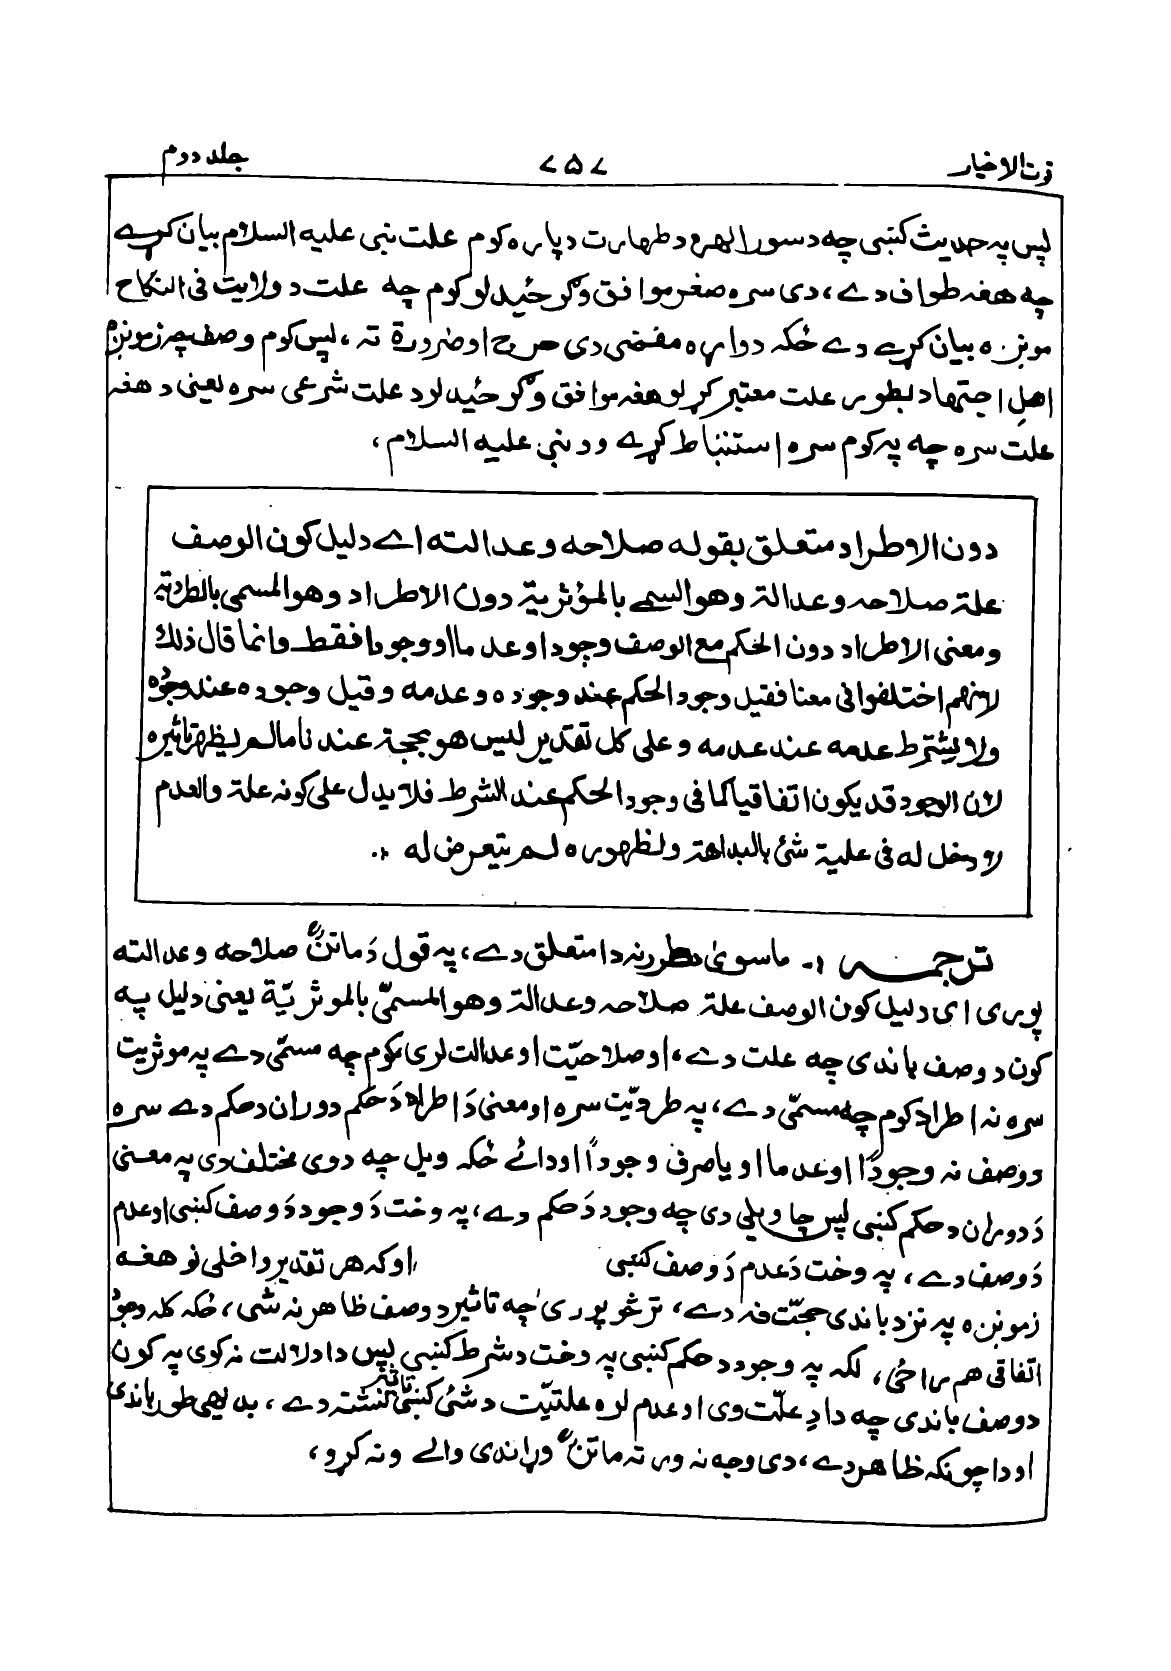 قوت الاخیار
۷۵۷
جلد دوم
لپس په حدیث کښې چه د سورالهرة د طهارت دپاره کوم علت نبی علیه السلام بیان کړے
چه هغه طواف دے، دی سره صغر موافق وګرځیدلو کوم چه علت د ولایت فی النکاح
مونږه بیان کړے دے ځکه دواړه مفضی دی حرج او ضرورة ته، لپس کوم وصف چه زمونږه
اهل اجتهاد بطور علت معتبر کړلو هغه موافق وګرځیدلو د علت شرعی سره یعنی د هغه
علت سره چه په کوم سره استنباط کړے وو نبی علیه السلام،
دون الاطراد متعلق بقوله صلاحه وعدالته اے دلیل کون الوصف
علة صلاحه وعدالة وهو المسمے بالمؤثریة دون الاطراد وهو المسمی بالطردیة
ومعنی الاطراد دون الحکم مع الوصف وجودا وعدما او وجودا فقط وانما قال ذلك
لانهم اختلفوا فی معنا فقیل وجود الحکم عند وجوده وعدمه وقیل وجوده عند وجوده
ولا یشترط عدمه عند عدمه وعلی کل تقدیر لیس هو بحجة عندنا مالم یظهر تاثیره
لان الوجود قد یکون اتفاقیا کما فی وجود الحکم عند الشرط فلا یدل علی کونه علة والعدم
لا دخل له فی علیة شئ بالبداهة ولظهوره لم یتعرض له ۔
ترجمه :۔ ماسویٰ د طرد نه دا متعلق دے، په قول دَ ماتنؒ صلاحه وعدالته
پوری ای دلیل کون الوصف علة صلاحه وعدالة وهو المسمّی بالموثریّة یعنی دلیل په
کون د وصف باندی چه علت دے، او صلاحیّت او عدالت لری کوم چه مسمّی دے په موثریت
سره نه اطراد کوم چه مسمّی دے، په طردیّت سره او معنی دَ اطراد دَ حکم دوران د حکم دے سره
د وصف نه وجودًا او عدما او یا صرف وجودًا او دائے ځکه ویل چه دوی مختلف دی په معنی
دَ دوران د حکم کښې لپس چا ویلی دی چه وجود دَ حکم دے، په وخت دَ وجود دَ وصف کښې او عدم
دَ وصف دے، په وخت دَ عدم دَ وصف کښې او که هر تقدیر واخلی نو هغه
زمونږه په نزد باندی حجّت نه دے، ترڅو پوری چه تاثیر د وصف ظاهر نه شی، ځکه کله وجود
اتفاقی هم راځی، لکه په وجود د حکم کښې په وخت د شرط کښې لپس دا دلالت نه کوی په کون
د وصف باندی چه دا دِ علّت وی او عدم لره علتیّت د شئ کښې تاثیر نشته دے، بدیهی طور باندی
او دا چونکه ظاهر دے، دی وجه نه ورته ماتنؒ وړاندی والے ونه کړو،